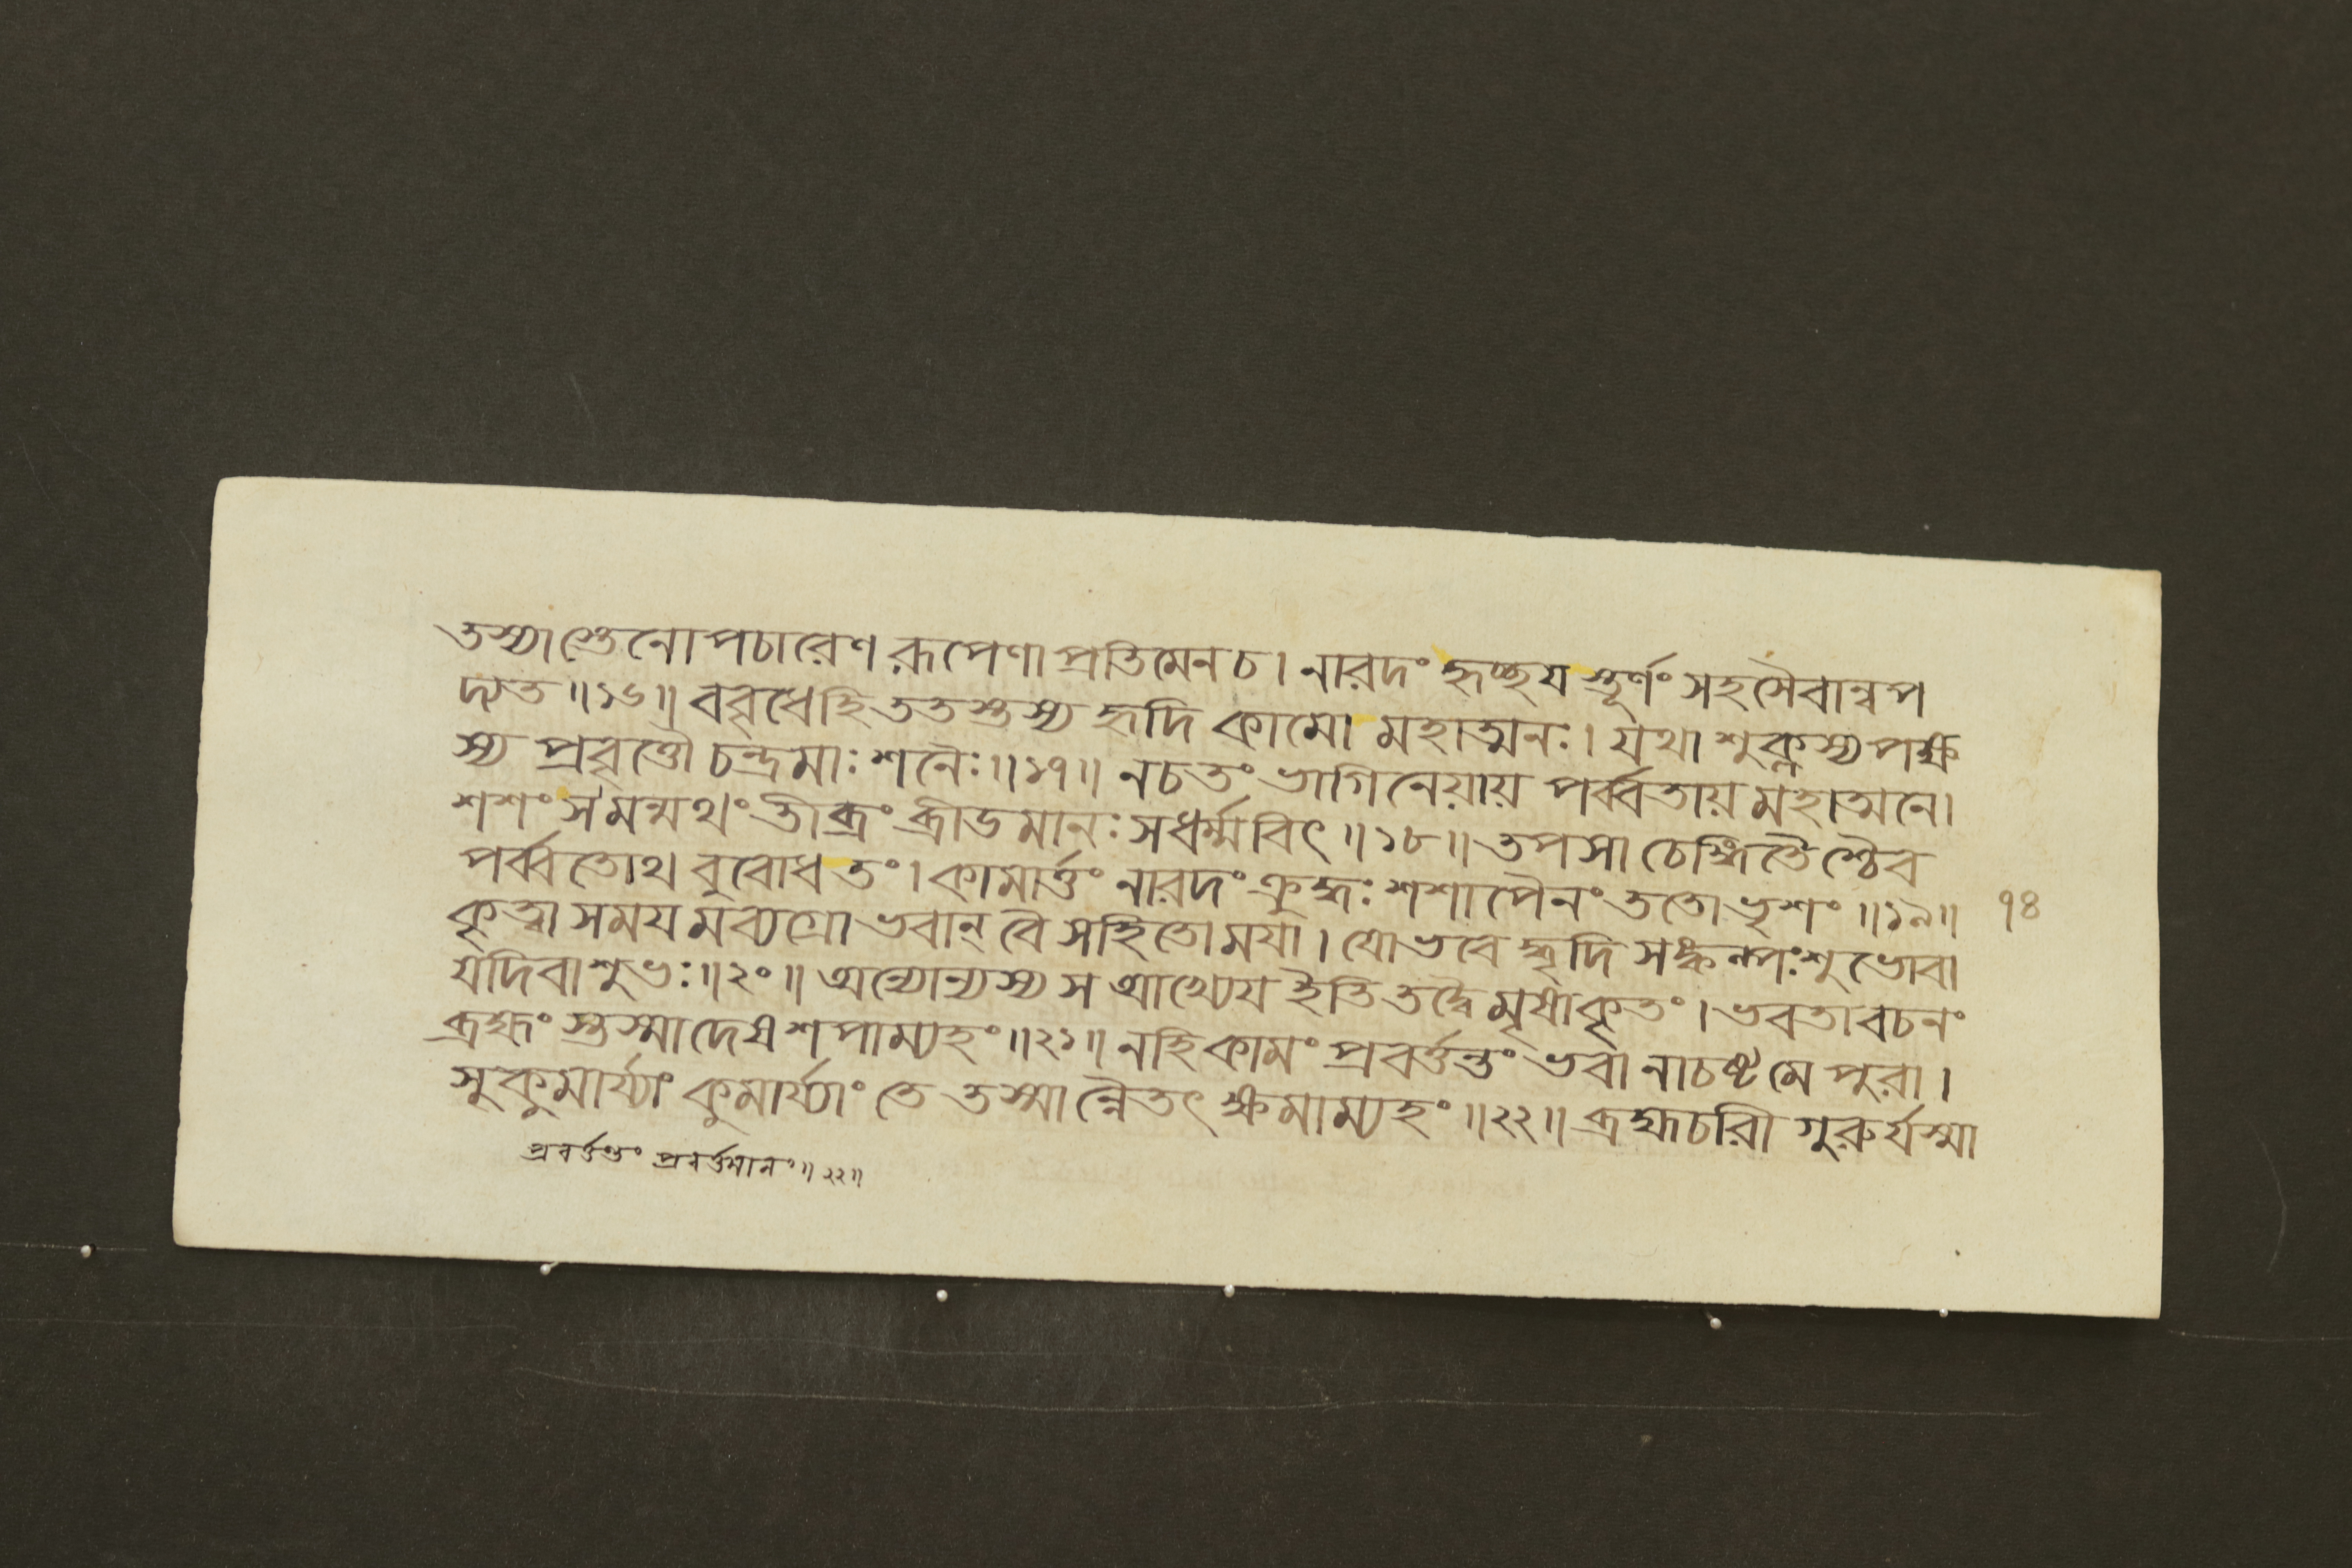 তস্যাস্তেনোপচারেণ রূপেণাপ্রতিমেনচ। নারদং হৃচ্ছয স্তূর্ণং সহসৈবান্বপ
দ্যত॥১৬॥ ববৃধেহি ততস্তস্য হৃদি কামো মহাত্মনঃ। যথা শুক্লস্য পক্ষ
স্য প্রবৃত্তৌ চন্দ্রমাঃ শনৈঃ॥১৭॥ নচতং ভাগিনেয়ায় পর্ব্বতায় মহাত্মনে।
শশংস মন্মথং তীব্রং ব্রীডমানঃ সধর্ম্মবিৎ॥১৮॥ তপসা চেঙ্গিতৈশ্চৈব
পর্ব্বতোথ বুবোধ তং। কামার্ত্তং নারদং ক্রুদ্ধঃ শশাপৈনং ততো ভৃশং॥১৯॥ ৭৪
কৃত্বা সময মব্যগ্রো ভবান্ বৈ সহিতো ময়া। যো ভবে দ্ধৃদি সঙ্কল্পঃ শুভোবা
যদিবা শুভঃ॥২০॥ অন্যোন্যস্য স আখ্যেয ইতি তদ্বৈ মৃষাকৃতং। ভবতা বচনং
ব্রহ্মং স্তস্মাদেষ শপাম্যহং॥২১॥ নহি কামং প্রবর্ত্তন্তং ভবা নাচষ্ট মে পুরা।
সুকুমার্য্যাং কুমার্য্যাং তে তস্মান্নৈতৎ ক্ষমাম্যহং॥২২॥ ব্রহ্মচরিী গুরুর্যস্মা
প্রবর্ত্তন্তং প্রবর্ত্তমানং॥২২॥